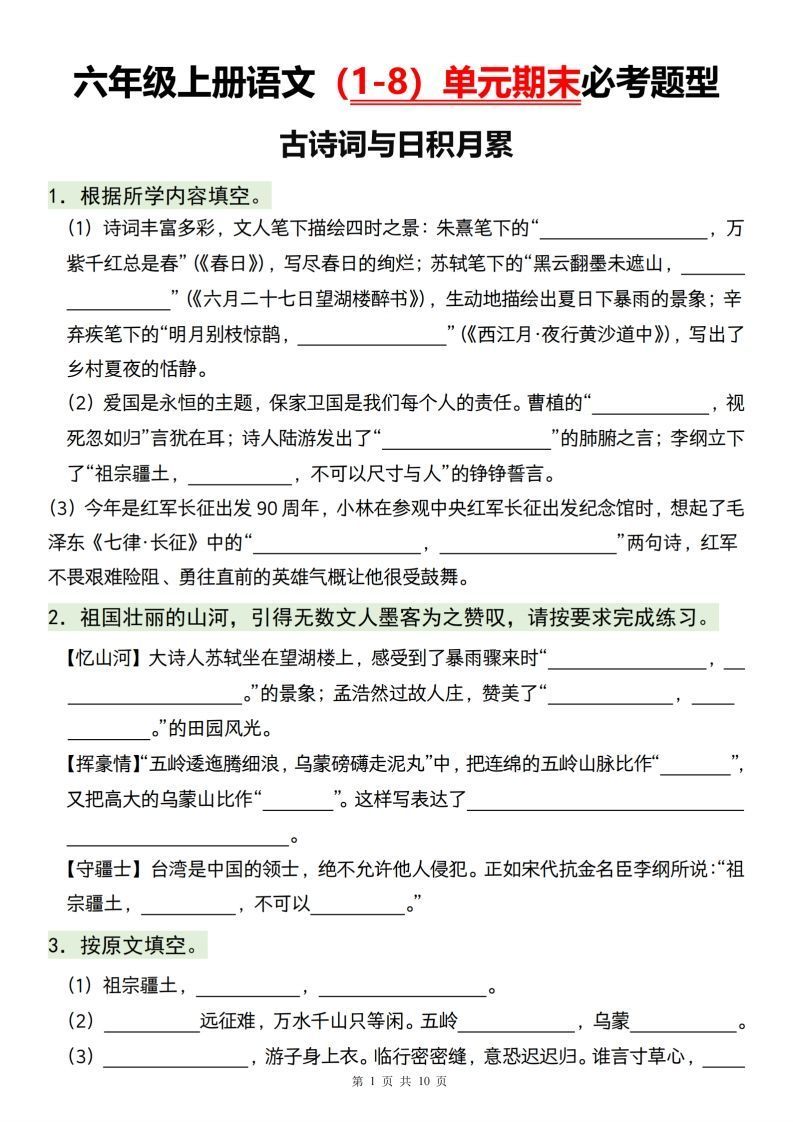 六年级上册语文（1-8）单元期末必考题型
古诗词与日积月累
1．根据所学内容填空。
（1）诗词丰富多彩，文人笔下描绘四时之景：朱熹笔下的“________________，万
紫千红总是春”（《春日》），写尽春日的绚烂；苏轼笔下的“黑云翻墨未遮山，______
__________”（《六月二十七日望湖楼醉书》），生动地描绘出夏日下暴雨的景象；辛
弃疾笔下的“明月别枝惊鹊，______________”（《西江月·夜行黄沙道中》），写出了
乡村夏夜的恬静。
（2）爱国是永恒的主题，保家卫国是我们每个人的责任。曹植的“___________，视
死忽如归”言犹在耳；诗人陆游发出了“________________”的肺腑之言；李纲立下
了“祖宗疆土，__________，不可以尺寸与人”的铮铮誓言。
（3）今年是红军长征出发 90 周年，小林在参观中央红军长征出发纪念馆时，想起了毛
泽东《七律·长征》中的“________________，_________________”两句诗，红军
不畏艰难险阻、勇往直前的英雄气概让他很受鼓舞。
2．祖国壮丽的山河，引得无数文人墨客为之赞叹，请按要求完成练习。
【忆山河】大诗人苏轼坐在望湖楼上，感受到了暴雨骤来时“_______________，__
_________________。”的景象；孟浩然过故人庄，赞美了“____________，____
________。”的田园风光。
【挥豪情】“五岭逶迤腾细浪，乌蒙磅礴走泥丸”中，把连绵的五岭山脉比作“_______”，
又把高大的乌蒙山比作“_______”。这样写表达了__________________________
_____________________。
【守疆士】台湾是中国的领士，绝不允许他人侵犯。正如宋代抗金名臣李纲所说：“祖
宗疆土，_________，不可以_________。”
3．按原文填空。
（1）祖宗疆土，__________，________________。
（2）_________远征难，万水千山只等闲。五岭___________，乌蒙__________。
（3）______________，游子身上衣。临行密密缝，意恐迟迟归。谁言寸草心，____
第 1 页 共 10 页